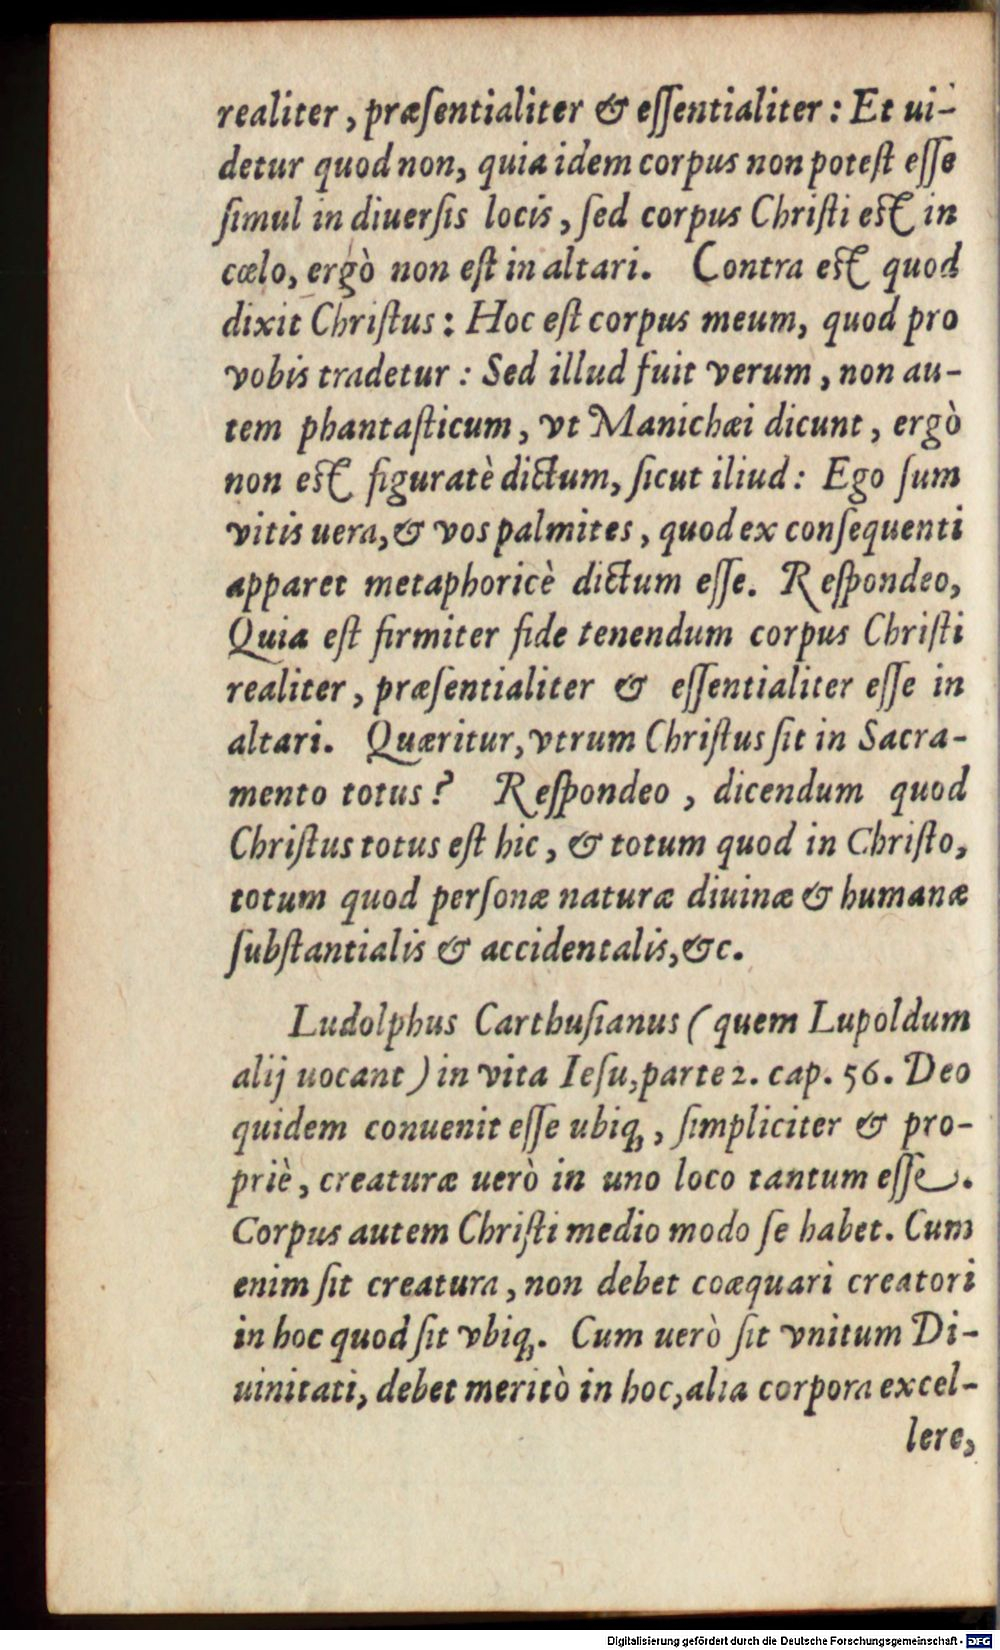 realiter, præſentialiter & eſſentialiter: Et ui-
detur quod non, quia idem corpus non poteſt eſſe
ſimul in diuerſis locis, ſed corpus Chriſti eſt in
cœlo, ergò non eſt in altari. Contra eſt quod
dixit Chriſtus: Hoc eſt corpus meum, quod pro
vobis tradetur: Sed illud fuit verum, non au-
tem phantaſticum, vt Manichæi dicunt, ergò
non eſt figuratè dictum, ſicut iliud: Ego ſum
vitis uera, & vos palmites, quod ex conſequenti
apparet metaphoricè dictum eſſe. Reſpondeo,
Quia eſt firmiter fide tenendum corpus Chriſti
realiter, præſentialiter & eſſentialiter eſſe in
altari. Quæritur, vtrum Chriſtus ſit in Sacra-
mento totus? Reſpondeo, dicendum quod
Chriſtus totus eſt hic, & totum quod in Chriſto,
totum quod perſonæ naturæ diuinæ & humanæ
ſubſtantialis & accidentalis, &c.
Ludolphus Carthuſianus (quem Lupoldum
alij uocant) in vita Ieſu, parte 2. cap. 56. Deo
quidem conuenit eſſe ubiq́;, ſimpliciter & pro-
priè, creaturæ uerò in uno loco tantum eſſe.
Corpus autem Chriſti medio modo ſe habet. Cum
enim ſit creatura, non debet coæquari creatori
in hoc quod ſit vbiq́;. Cum uerò ſit vnitum Di-
uinitati, debet meritò in hoc, alia corpora excel-
lere,
Digitalisierung gefördert durch die Deutsche Forschungsgemeinschaft - DFG